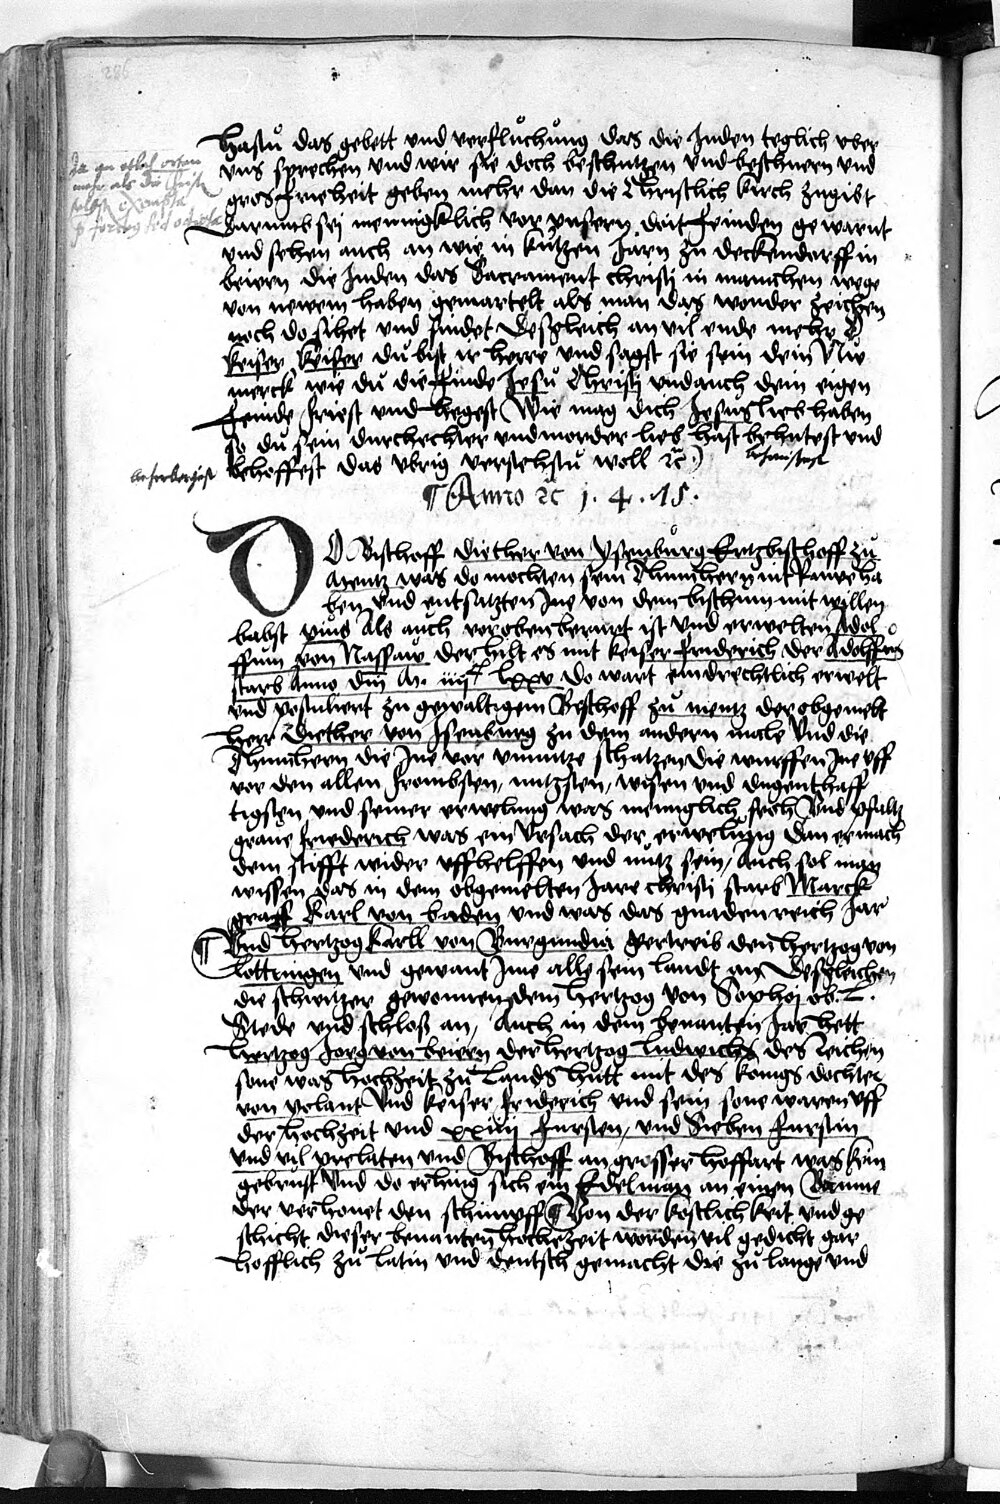 286
hastu das gebett und verfluchung das die Juden teglich uber
uns sprechen und wir sie doch beschutzen und beschuern und
gros frieheit geben mehr dan die Christlich kirch zugibt
Darumb sej mennigklich vor unsern doit feinden gewarnt
und sehen auch an wie in kutzen Jarn zu deckendorff in
beiern die Juden das Sacrament christj in manchen wege
von newem haben gemartelt als man das wonder zeichen
noch do sihet und findet Desgleich an vil ende mehr O
keiser keiser du bist ir herre und sagst sie sein dein Nu
merck wie du die feinde Jesu Christj und auch dein eigen
feinde friest und hegest Wie mag dich Jesus lieb haben
so du sein durchechter und morder lieb hast behutest und
behoffest das ubrig verstehstu woll ꝛc)
¶ Anno ꝛc 1.4.75.
DO Bischoff Diether von Ysenburg Ertzbischoff zu
Mentz was do mochten sein Thumhern nit Ruwe ha
ben und entsatzten Ine von dem bischum mit willen
babst pius Als auch vor oben berurt ist und erwelten Adol
ffum von Nassaw der hilt es mit keiser friderich der Adolffus
starb Anno dm M. iiijc lxxv do wart eindrechtlich erwelt
und postuliert zu gewaltigem Bischoff zu mentz der obgemelt
herr Diether von Isenburg zu dem andern male Und die
Thumhern die Ine vor unnutze schatzen die wurffen Ine uff
vor den allen frombsten, nutzsten, wisen und dugenthaff
tigsten und seiner erwelung was menniglich froh Und pfaltz
graue friederich was ein Ursach der erwelung dan er mach
dem stifft wider uffhelffen und nutz sein, Auch sol man
wissen das in dem obgemelten Jare christj starb Marck
graff Karl von baden und was das gnaden reich Jar
¶ Und hertzog Karll von Burgundia vertreib den hertzog von
lottringen und gewant Ime alle sein landt an Desgleichen
die schwitzer gewonnen dem hertzog von Sophoj ob. L.
Stede und schloß an, Auch in dem benanten Jar hett
hertzog Jorg von beiern der hertzog Ludwichs des Reichen
sone was hochzeit zu Lands hutt mit des konigs dochter
von polant Und keiser friderich und sein sone waren uff
der hochzeit und xxiiij fursten, und Sieben furstin
und vil prelaten und Bischoff an grosser hoffart was kein
gebrust Und do erhing sich ein Edelman an einen Baume
der verhonet den schimpff ¶ Von der kostlichkeit und ge
schicht dieser benanten hochezeit worden vil gedicht gar
hofflich zu latin und deutsch gemacht die zu lange und